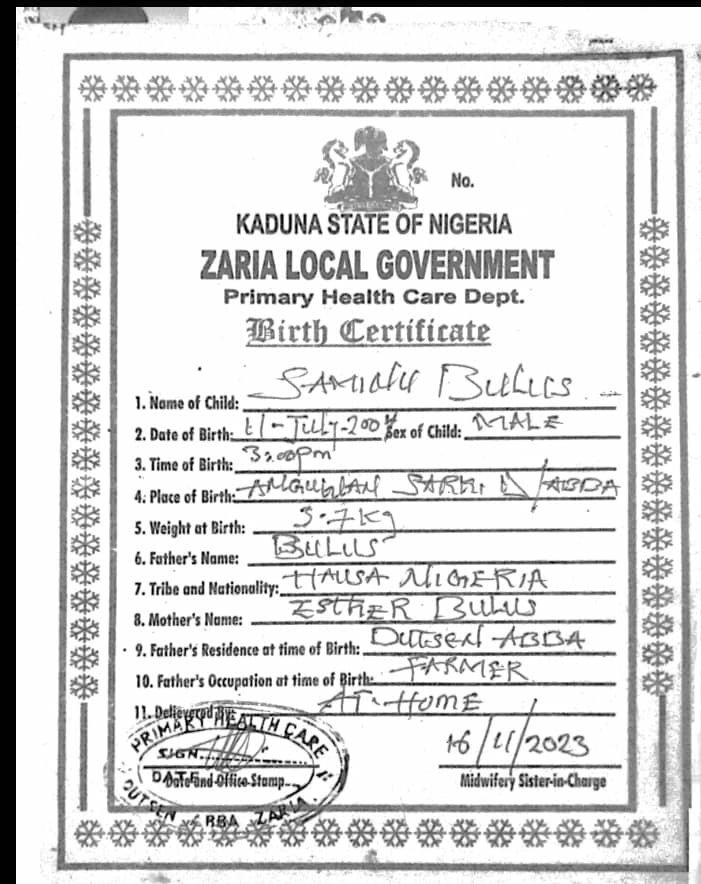 No.
KADUNA STATE OF NIGERIA
ZARIA LOCAL GOVERNMENT
Primary Health Care Dept.
Birth Certificate
1. Name of Child: BULUS
2. Date of Birth: July-2004 Sex of Child: MALE
3. Time of Birth: 3:00pm
4. Place of Birth: SARKI D/ABBA
5. Weight at Birth: 3.7kg
6. Father's Name: BULUS
7. Tribe and Nationality: HAUSA NIGERIA
8. Mother's Name: ESTHER BULUS
9. Father's Residence at time of Birth: DUTSEN ABBA
10. Father's Occupation at time of Birth: FARMER
11. Delievered By: AT HOME
PRIMARY HEALTH CARE
SIGN.
DATE
DUTSEN ABBA ZARIA.
16/11/2023
Date and Office Stamp
Midwifery Sister-in-Charge